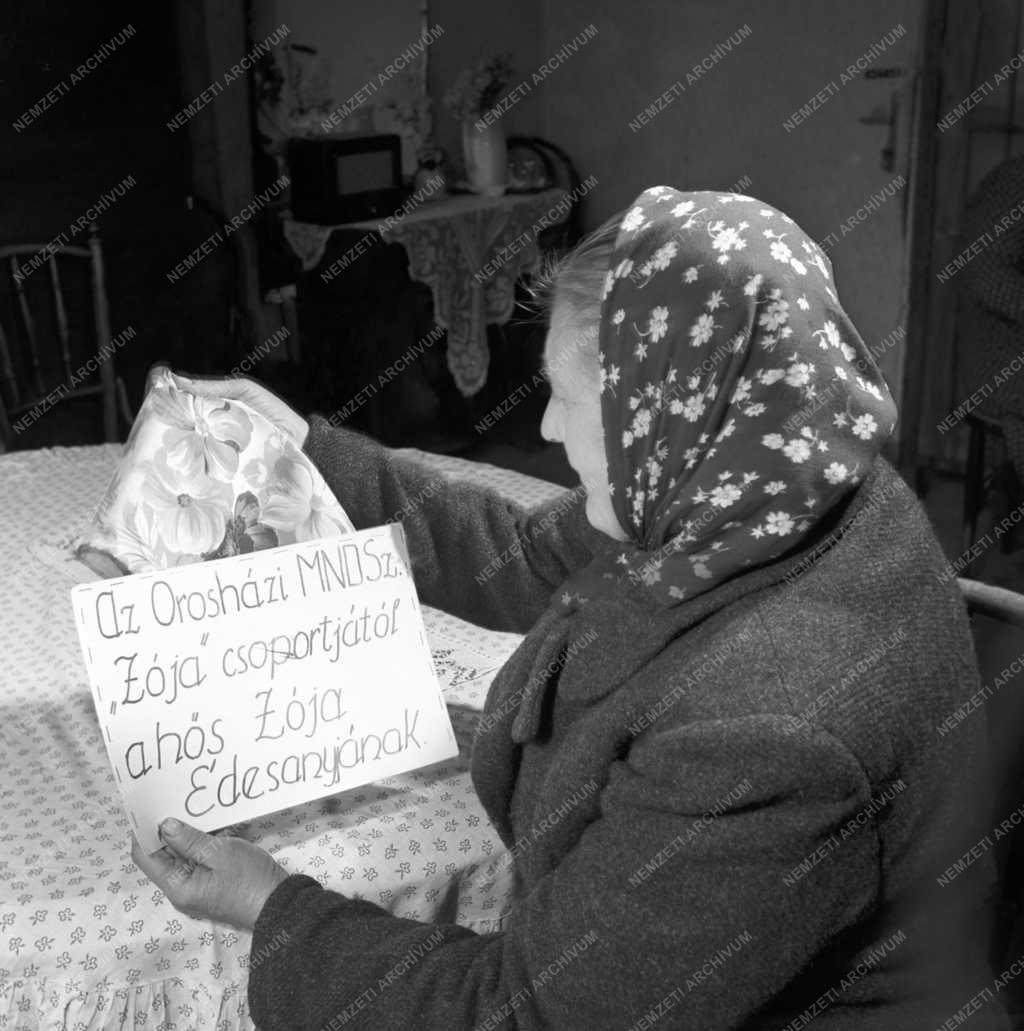 Az Orosházi MNDSz.
„Zója" csoportjától
a hős Zója
Édesanyjának.
NEMZETI ARCHÍVUM